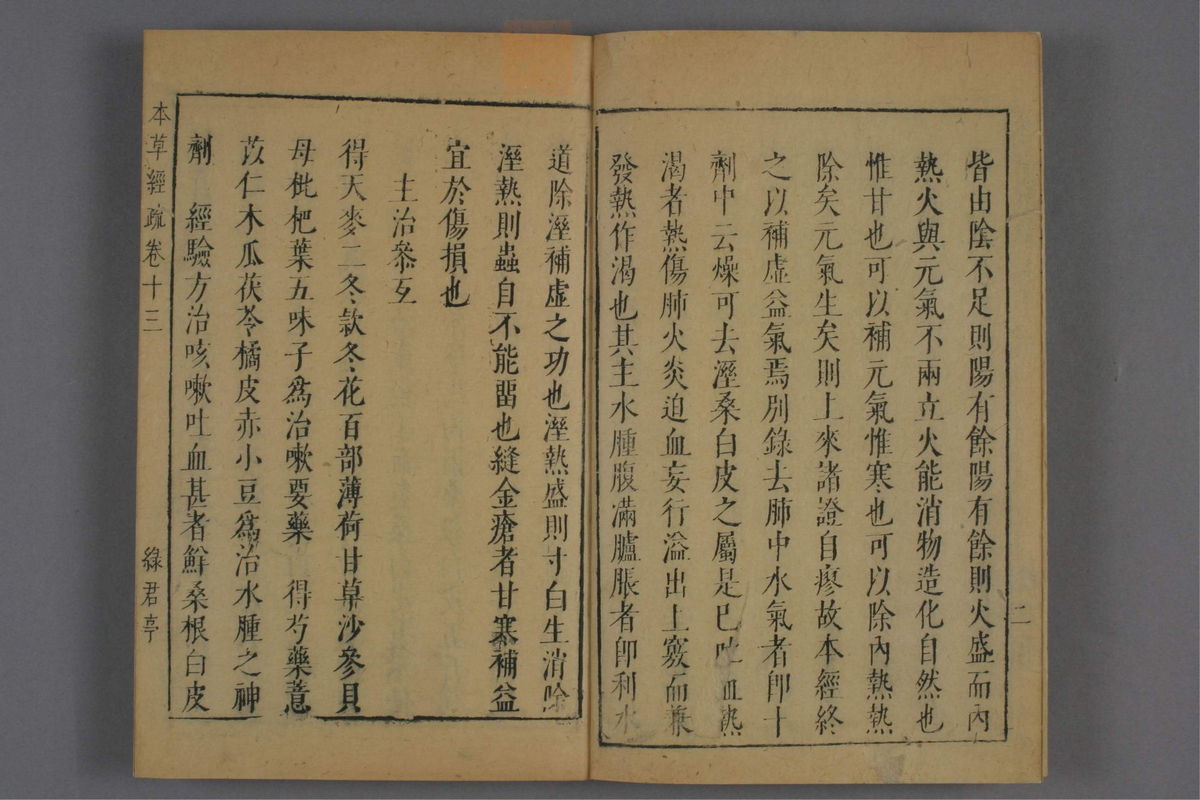 皆由陰不足則陽有餘陽有餘則火盛而內
熱火與元氣不兩立火能消物造化自然也
惟甘也可以補元氣惟寒也可以除內熱熱
除矣元氣生矣則上來諸證自瘳故本經終
之以補虛益氣焉別錄去肺中水氣者卽十
劑中云燥可去溼桑白皮之屬是已吐血熱
渴者熱傷肺火炎迫血妄行溢出上竅而兼
發熱作渴也其主水腫腹滿臚脹者卽利水
二
道除溼補虛之功也溼熱盛則寸白生消除
溼熱則蟲自不能畱也縫金瘡者甘寒補益
宜於傷損也
主治參互
得天麥二冬款冬花百部薄荷甘草沙參貝
母枇杷葉五味子爲治嗽要藥　得芍藥薏
苡仁木瓜茯苓橘皮赤小豆爲治水腫之神
劑　經驗方治咳嗽吐血甚者鮮桑根白皮
本草經疏卷十三
綠君亭